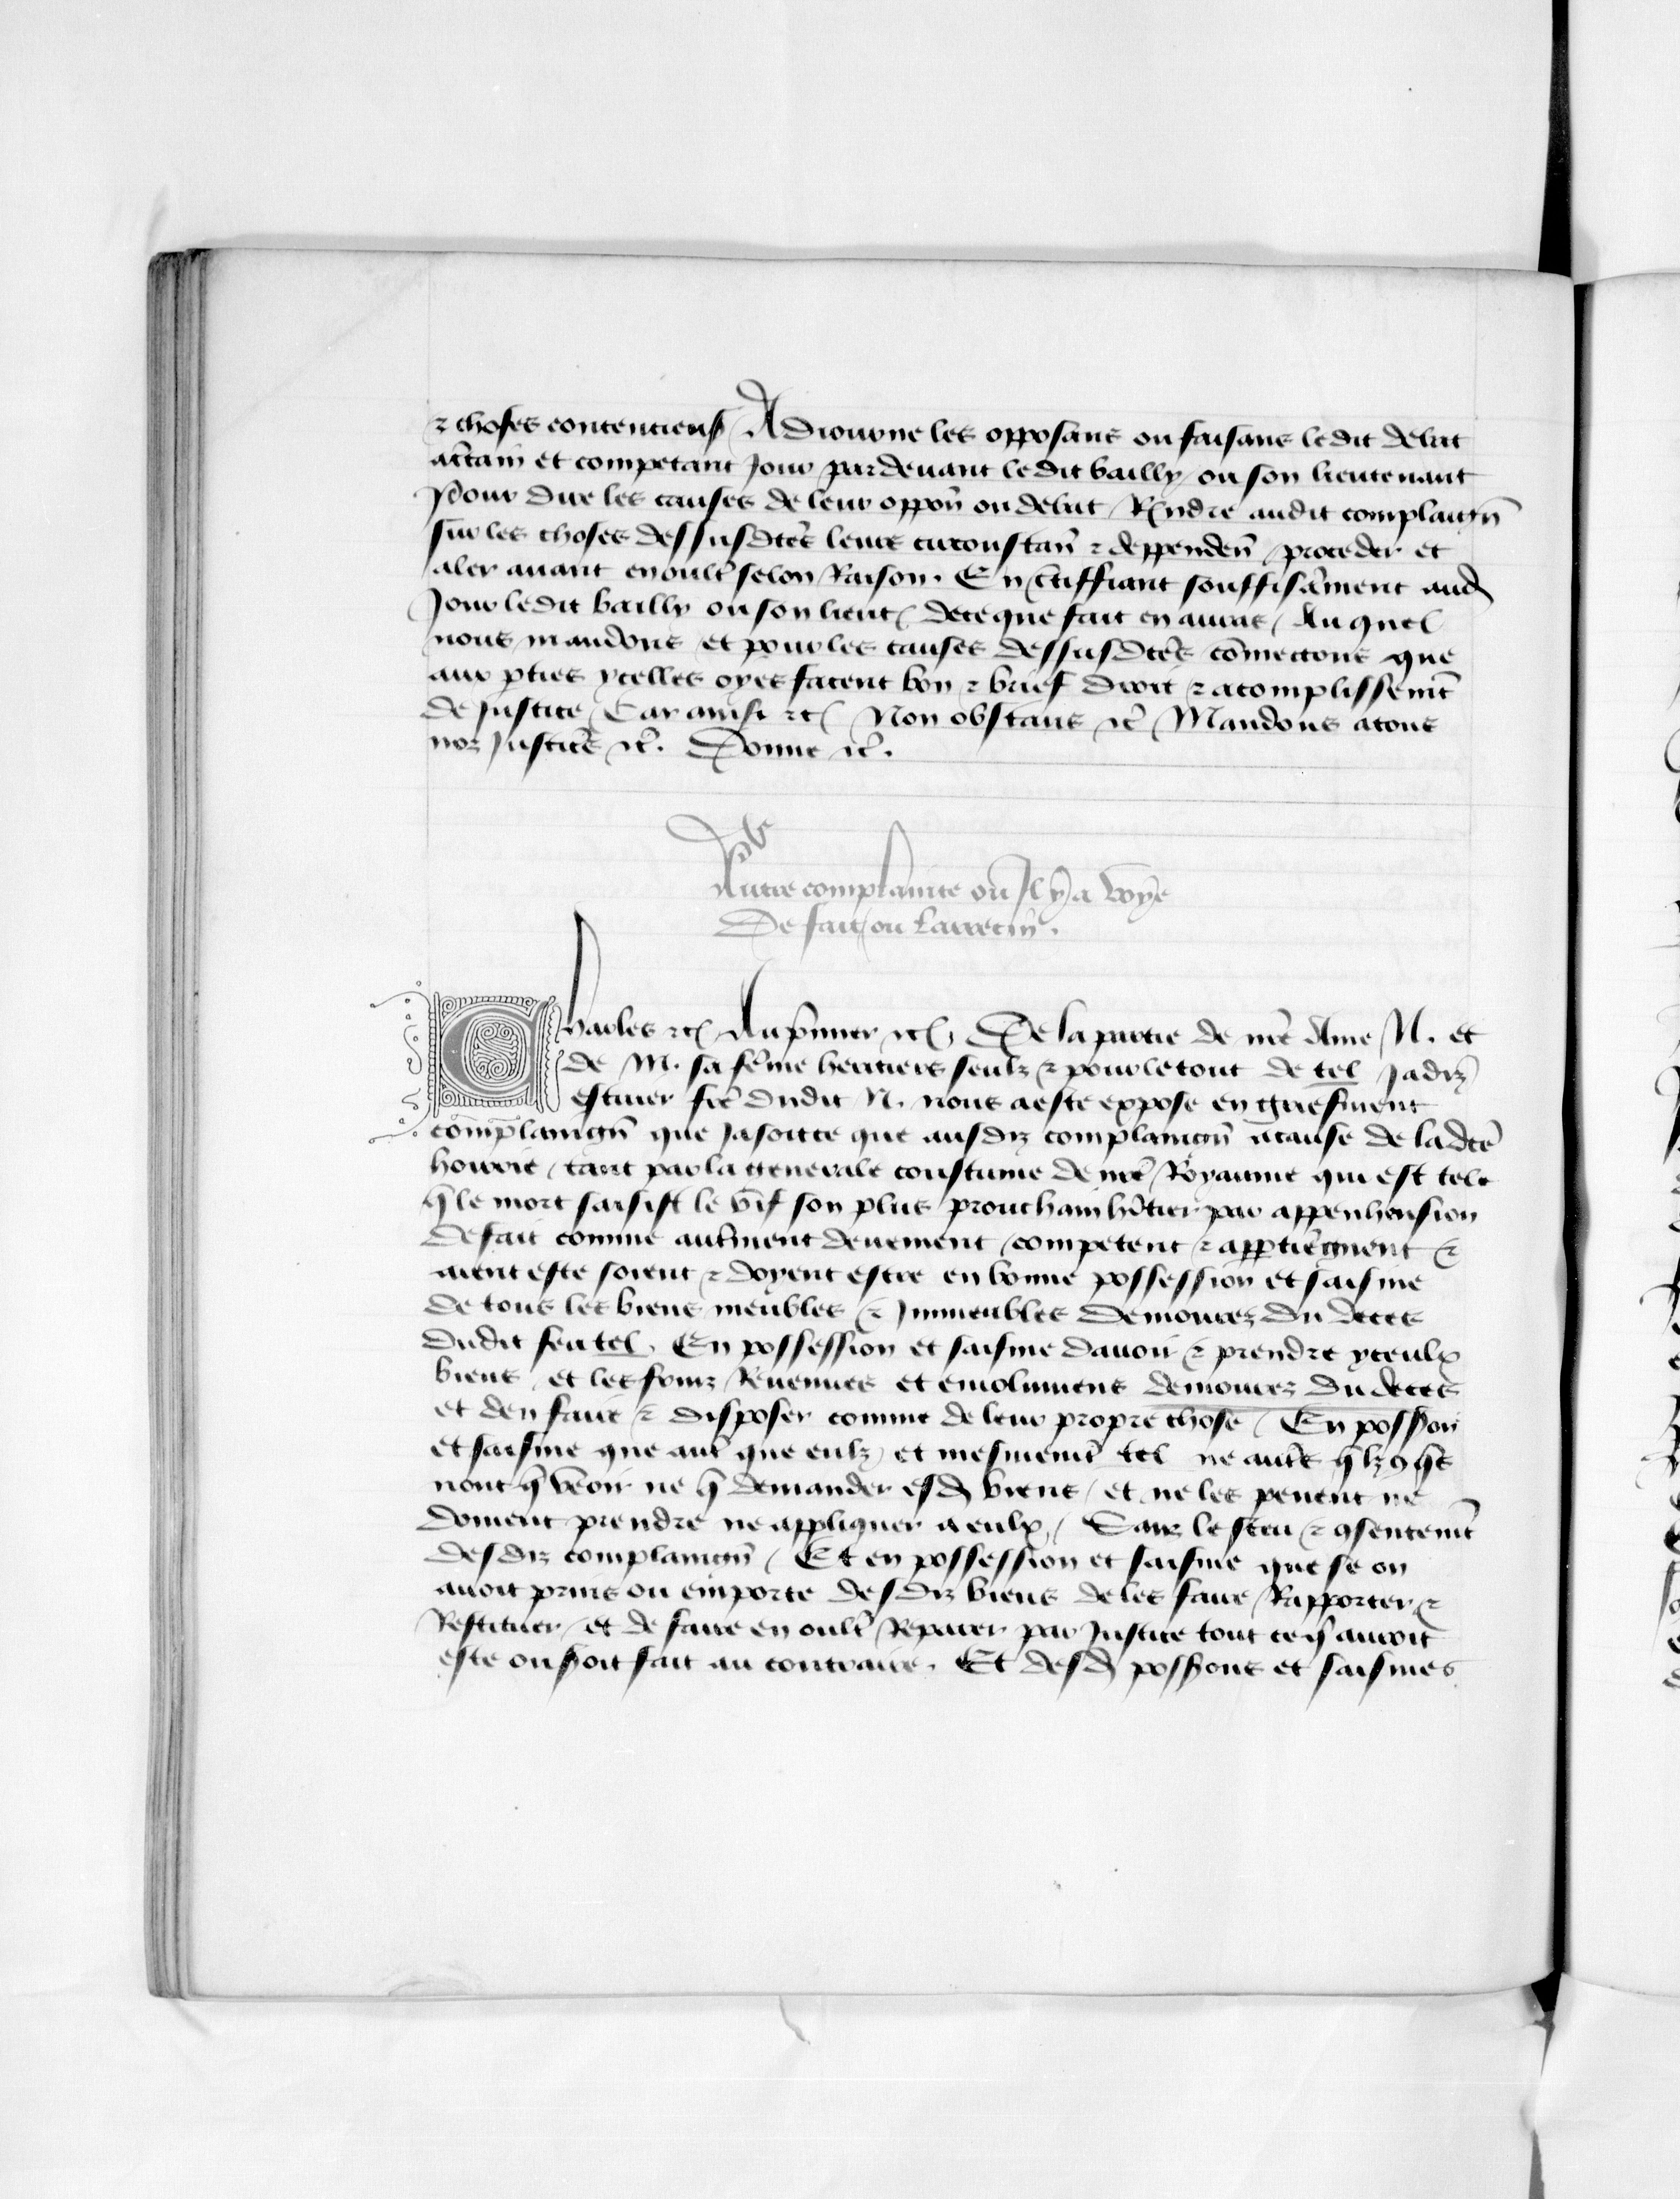 ⁊ choses contencieus̾ Adiourne les opposans ou faisans ledit debat
acc̃tain et competant jour pardeuant ledit bailly ou son lieutenant
Pour dire les causes de leur oppoñ ou debat Rñdre audit complaign̄
sur les choses dessusdc̃es leurs circonstan̄ ⁊ deppenden̄ proceder et
aler auant en oult̃ selon Raison. En c̃tiffiant souffisãment aud̾
Jour ledit bailly ou son lieut̾ de ce que fait en auras / Auquel
nous mandons et pour les causes dessusdc̃es cõmectons que
aux p̱ties ycelles oyes facent bon ⁊ brief droit ⁊ acomplissem̃t
de justice / Car ainsi ⁊c̾ Non obstans ⁊c̃ Mandons a tous
noz justic̃s ⁊c̃. Donne ⁊c̃.
Autre complainte ou Il y a voye
De fait / ou Larrecin.
Charles ⁊c̾ Au p̃mier ⁊c̾. De la partie de nr̃e Ame N. et
de M. sa fẽme heritiers seulz ⁊ pour le tout de tel Jadiz
escuier fr̃e dudit N. nous a este expose en griefment
complaingn̄ que Jasoitce que ausdiz complaingn̄ a cause de ladc̃e
hoirrie / tant par la generale coustume de nr̃e Royaume qui est tele
q̃ le mort saisist le vif son plus prouchain hr̃itier par apprehension
de fait comme autr̃ment deuement / competent ⁊ app̱tiẽgnent ⁊
aient este soient ⁊ doyent estre en bonne possession et saisine
de tous les biens meubles ⁊ Immeubles demourez du deces
dudit feu tel. En possession et saisine dauoir ⁊ prendre yceulx
biens et les fruiz Reuenues et emolumens demourez du deces
et den faire ⁊ disposer comme de leur propre chose / En poss̾on
et saisine que aut̃ que eulz / et mesmem̃t tel ne aut̃s q̃lz ꝯq̃s
nont q̃ veoir ne q̃ demander esd̾ biens / et ne les peuent ne
doiuent prendre ne appliquer a eulx / Sanz le sceu ⁊ ꝯsentem̃t
desdiz complaingn̄ / Et en possession et saisine que se on
auoit prins ou emporte desdiz biens de les faire Rapporter ⁊
Restituer / et de faire en oult̃ Reparer par Justice tout ce q̃ auroit
este ou s̾oit fait au contraire. Et desd̾ poss̾ons et saisines